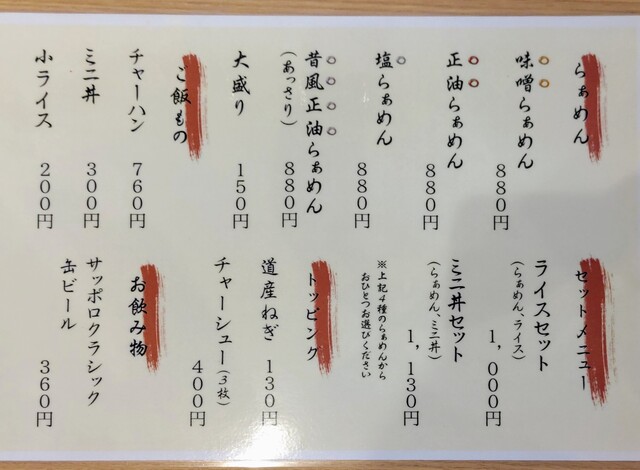 らぁめん
味噌らぁめん
880円
正油らぁめん
880円
塩らぁめん
880円
昔風正油らぁめん
(あっさり)
880円
大盛り
150円
ご飯もの
チャーハン
760円
ミニ丼
300円
小ライス
200円
セットメニュー
ライスセット
(らぁめん、ライス)
1,000円
ミニ丼セット
(らぁめん、ミニ丼)
1,130円
※上記4種のらぁめんから
おひとつお選びください
トッピング
道産ねぎ
130円
チャーシュー(3枚)
400円
お飲み物
サッポロクラシック
缶ビール
360円